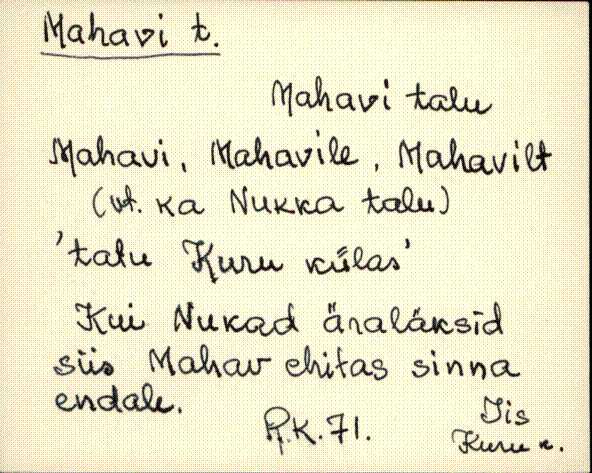 Mahavi t.
Mahavi talu
Mahavi, Mahavile, Mahavilt
(vt. ka Nukka talu)
'talu Kuru külas'
Kui Nukad äraläksid
siis Mahav ehitas sinna
endale.
R.K. 71.
Iis
Kuru k.